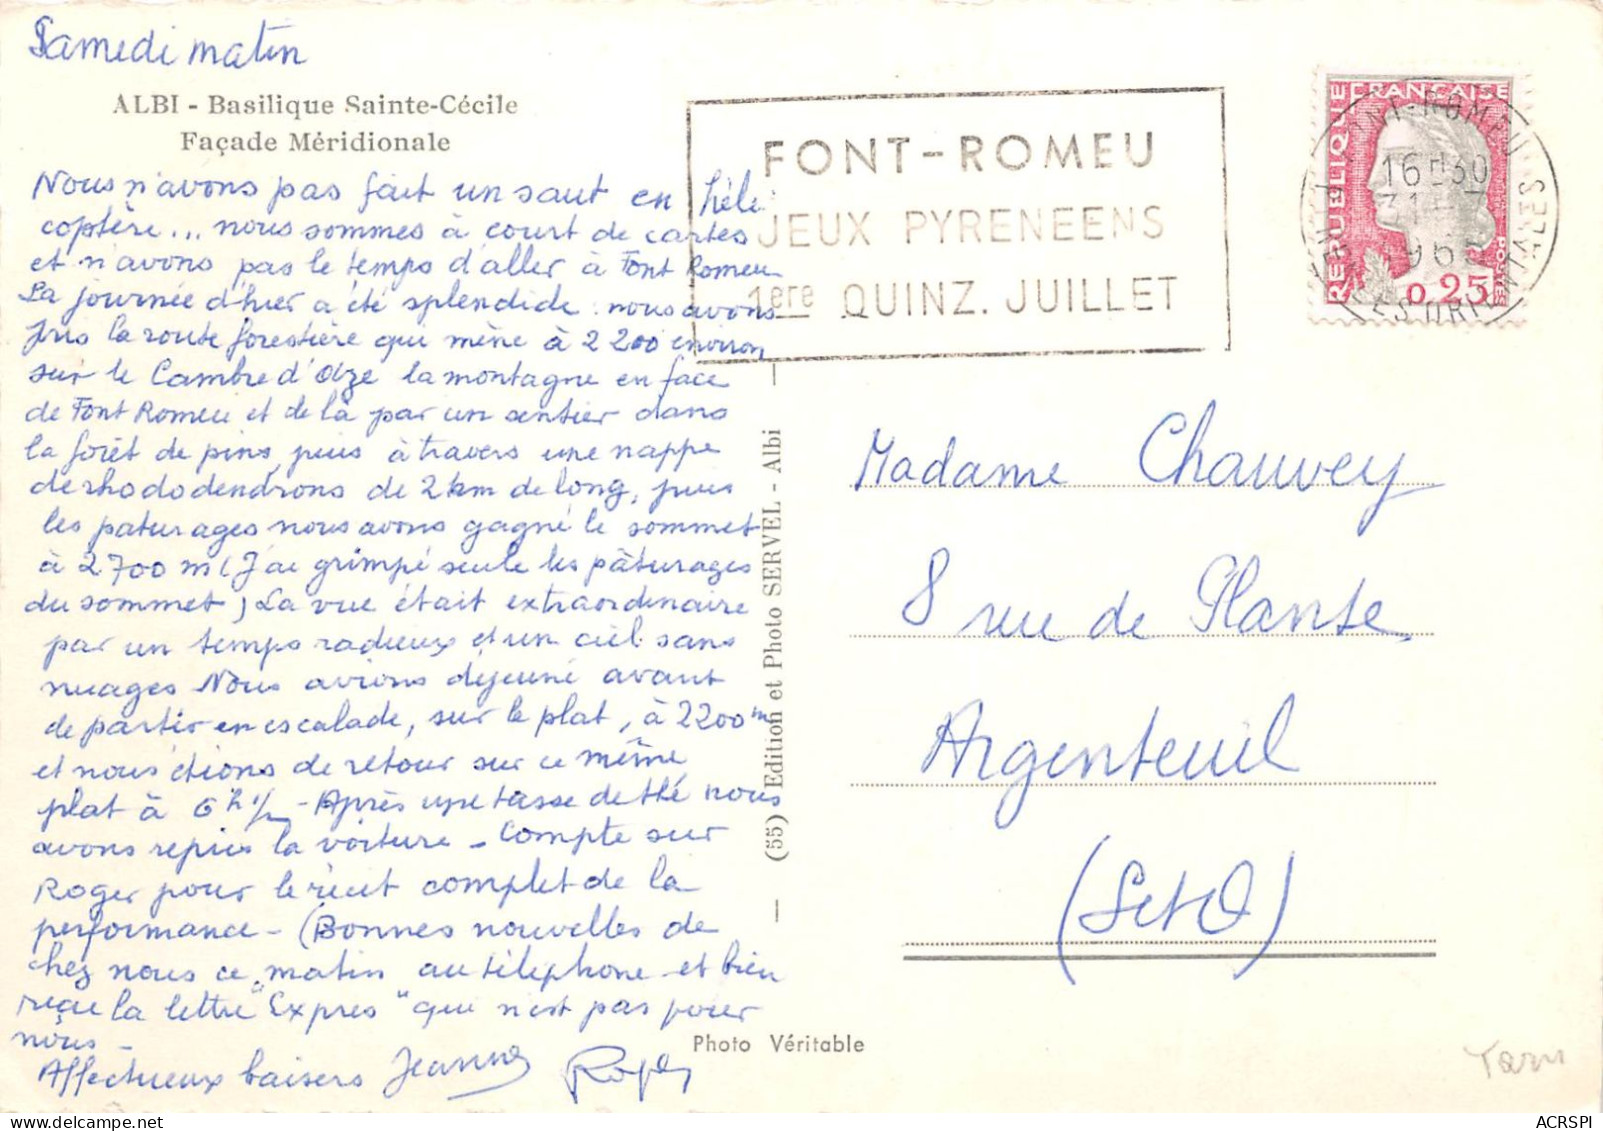 Samedi matin
ALBI - Basilique Sainte-Cécile
Façade Méridionale
Nous n'avons pas fait un saut en héli
coptère... nous sommes à court de cartes
et n'avons pas le temps d'aller à Font Romeu
La journée d'hier a été splendide : nous avons
pris la route forestière qui mène à 2200 environ
sur le Cambre d'Aze la montagne en face
de Font Romeu et de là par un sentier dans
la forêt de pins, puis à travers une nappe
de rhododendrons de 2 km de long, puis
les paturages nous avons gagné le sommet
à 2700 m (J'ai grimpé seule les pâturages
du sommet) La vue était extraordinaire
par un temps radieux et un ciel sans
nuages Nous avions déjeuné avant
de partir en escalade, sur le plat, à 2200 m
et nous étions de retour sur ce même
plat à 6h 1/2 - Après une tasse de thé nous
avons repris la voiture - Compte sur
Roger pour le récit complet de la
performance - (Bonnes nouvelles de
chez nous ce matin au téléphone et bien
reçu la lettre "Expres" que n'est pas pour
nous -
Affectueux baisers Jeanne Roger
FONT-ROMEU
JEUX PYRENEENS
1ere QUINZ. JUILLET
REPUBLIQUE FRANÇAISE
POSTES
0,25
FONT-ROMEU
16H30
31-7
PYRENEES ORIENTALES
(55) Edition et Photo SERVEL - Albi
Madame Chauvey
8 rue de Plante
Argenteuil
(S et O)
Photo Véritable
Tarn
ACRSPI